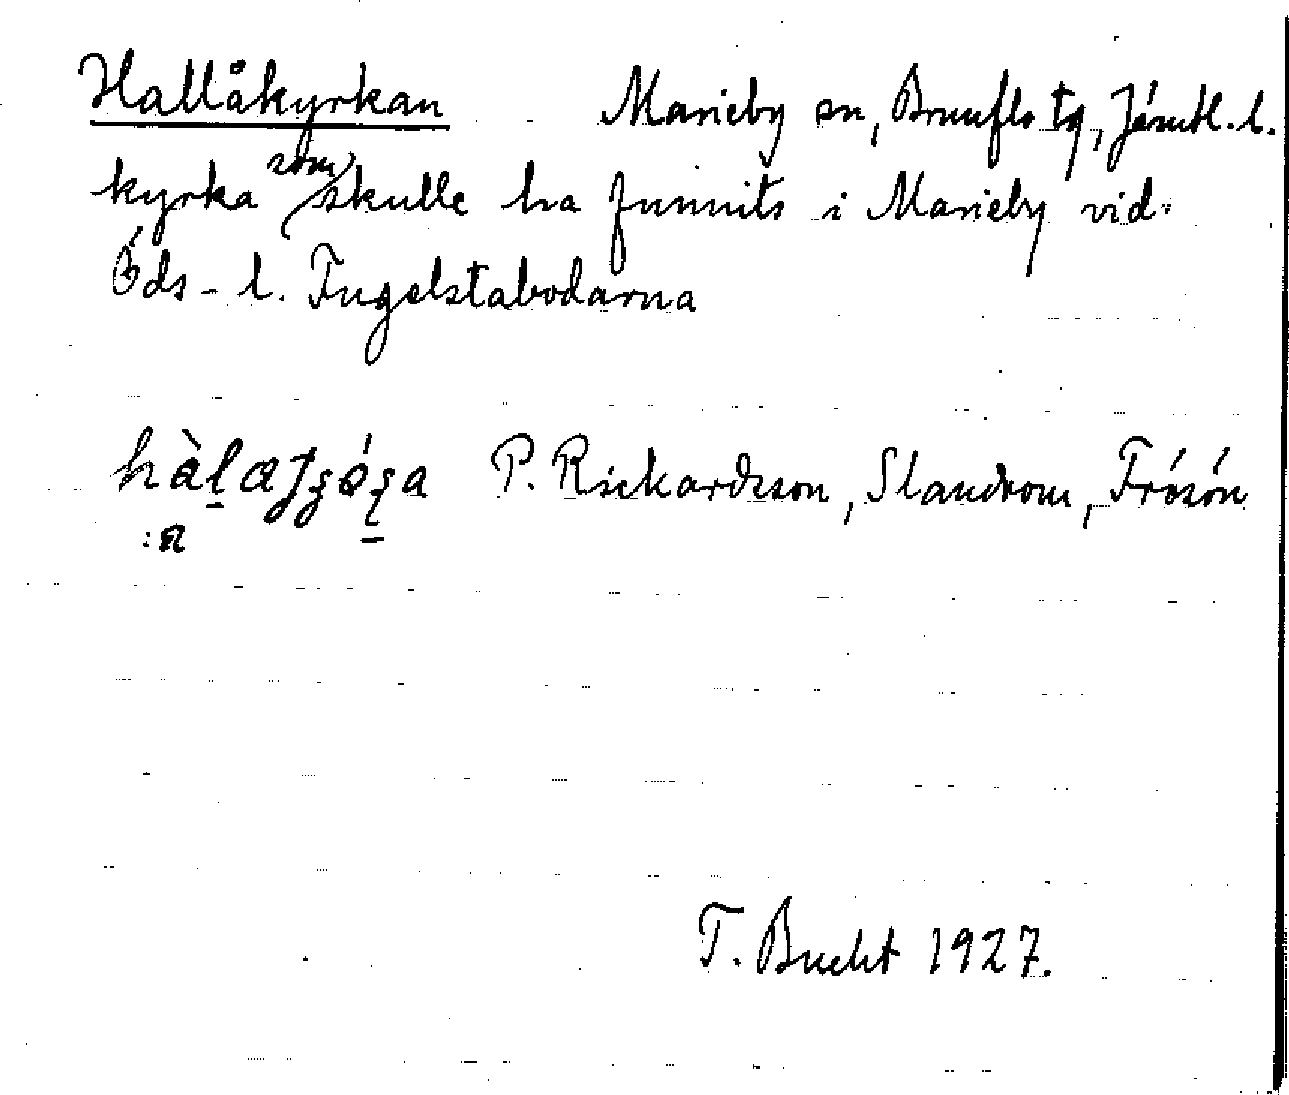 Hallåkyrkan Marieby sn, Brunflo tg, Jämtl. l.
kyrka som skulle ha funnits i Marieby vid
Öds- l. Fugelstabodarna
P. Rickardsson, Slandrom, Frösön
T. Bucht 1927.